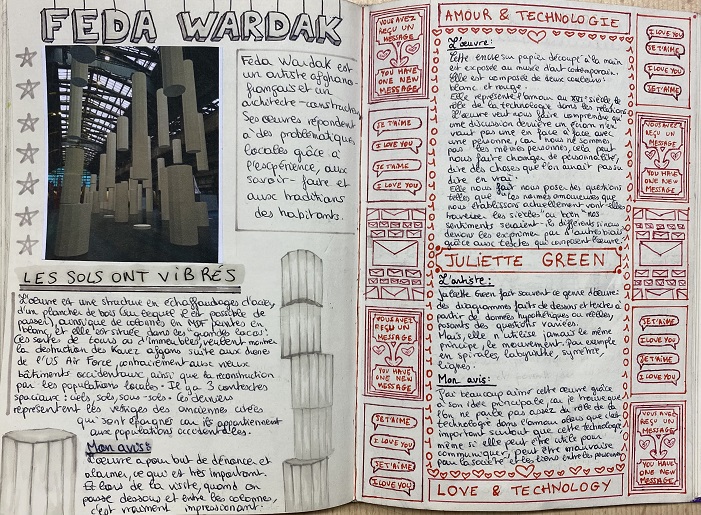 FEDA WARDAK
Feda Wardak est
un artiste afghano-
français et un
architecte-constructeur
Ses œuvres répondent
à des problématiques
locales grâce à
l'expérience, aux
savoir-faire et
aux traditions
des habitants.
LES SOLS ONT VIBRÉS
L'œuvre est une structure en échaffaudages d'acier,
d'un plancher de bois (sur lequel il est possible de
passer), ainsi que de colonnes en MDF peintes en
blanc, et elle est située dans les "grands locaux".
Ces sortes de tours ou d'immeubles, veulent montrer
la destruction des Karez afgans suite aux drone
de l'US Air Force, contrairement aux vieux
bâtiments occidentaux ainsi que la construction
par les populations locales. Il y a 3 contextes
spaciaux : ciels, sols, sous-sols. Ces derniers
représentent les vestiges des anciennes cités
qui sont épargnés car ils appartiennent
aux populations occidentales.
Mon avis:
L'œuvre a pour but de dénoncer et
alarmer, ce qui est très important.
Et lors de la visite, quand on
passe dessous et entre les colonnes,
c'est vraiment impressionnant.
AMOUR & TECHNOLOGIE
L'œuvre:
Cette encre sur papier découpé à la main
est exposée au musée d'art contemporain.
Elle est composée de deux couleurs:
blanc et rouge.
Elle représente l'amour au XXIe siècle, le
rôle de la technologie dans les relations.
L'œuvre veut nous faire comprendre qu'
une discussion derrière un écran n'en
vaut pas une en face à face avec
une personne, car nous ne sommes
pas les mêmes personnes, cela peut
nous faire changer de personnalité,
dire des choses que l'on aurait pas su
dire en vrai.
Elle nous fait nous poser des questions
telles que "les normes amoureuses que
nous établissons actuellement vont-elles
traverser les siècles" ou bien "nos
sentiments seraient-ils différents si nous
devions les exprimer par d'autres biais"
grâce aux textes qui composent l'œuvre.
JULIETTE GREEN
L'artiste:
Juliette Green fait souvent ce genre d'œuvre:
des diagrammes faits de dessins et textes à
partir de données hypothétiques ou réelles,
posants des questions variées.
Mais, elle n'utilise jamais le même
principe, le mouvement. Par exemple
en spirales, labyrinthe, symétrie,
lignes.
Mon avis:
J'ai beaucoup aimé cette œuvre grâce
à son idée principale, car je trouve que
l'on ne parle pas assez du rôle de la
technologie dans l'amour alors que c'est
important surtout que cette technologie
même si elle peut être utile pour
communiquer, peut être mauvaise
pour la société et les liens entre les personnes
LOVE & TECHNOLOGY
VOUS AVEZ
REÇU UN
MESSAGE
YOU HAVE
ONE NEW
MESSAGE
JE T'AIME
I LOVE YOU
JE T'AIME
I LOVE YOU
VOUS AVEZ
REÇU UN
MESSAGE
YOU HAVE
ONE NEW
MESSAGE
JE T'AIME
I LOVE YOU
JE T'AIME
I LOVE YOU
I LOVE YOU
JE T'AIME
I LOVE YOU
JE T'AIME
VOUS AVEZ
REÇU UN
MESSAGE
YOU HAVE
ONE NEW
MESSAGE
JE T'AIME
I LOVE YOU
JE T'AIME
I LOVE YOU
VOUS AVEZ
REÇU UN
MESSAGE
YOU HAVE
ONE NEW
MESSAGE